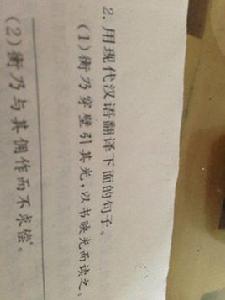 2. 用现代汉语翻译下面的句子。
(1)衡乃穿壁引其光,以书映光而读之。
(2)衡乃与其佣作而不求偿。